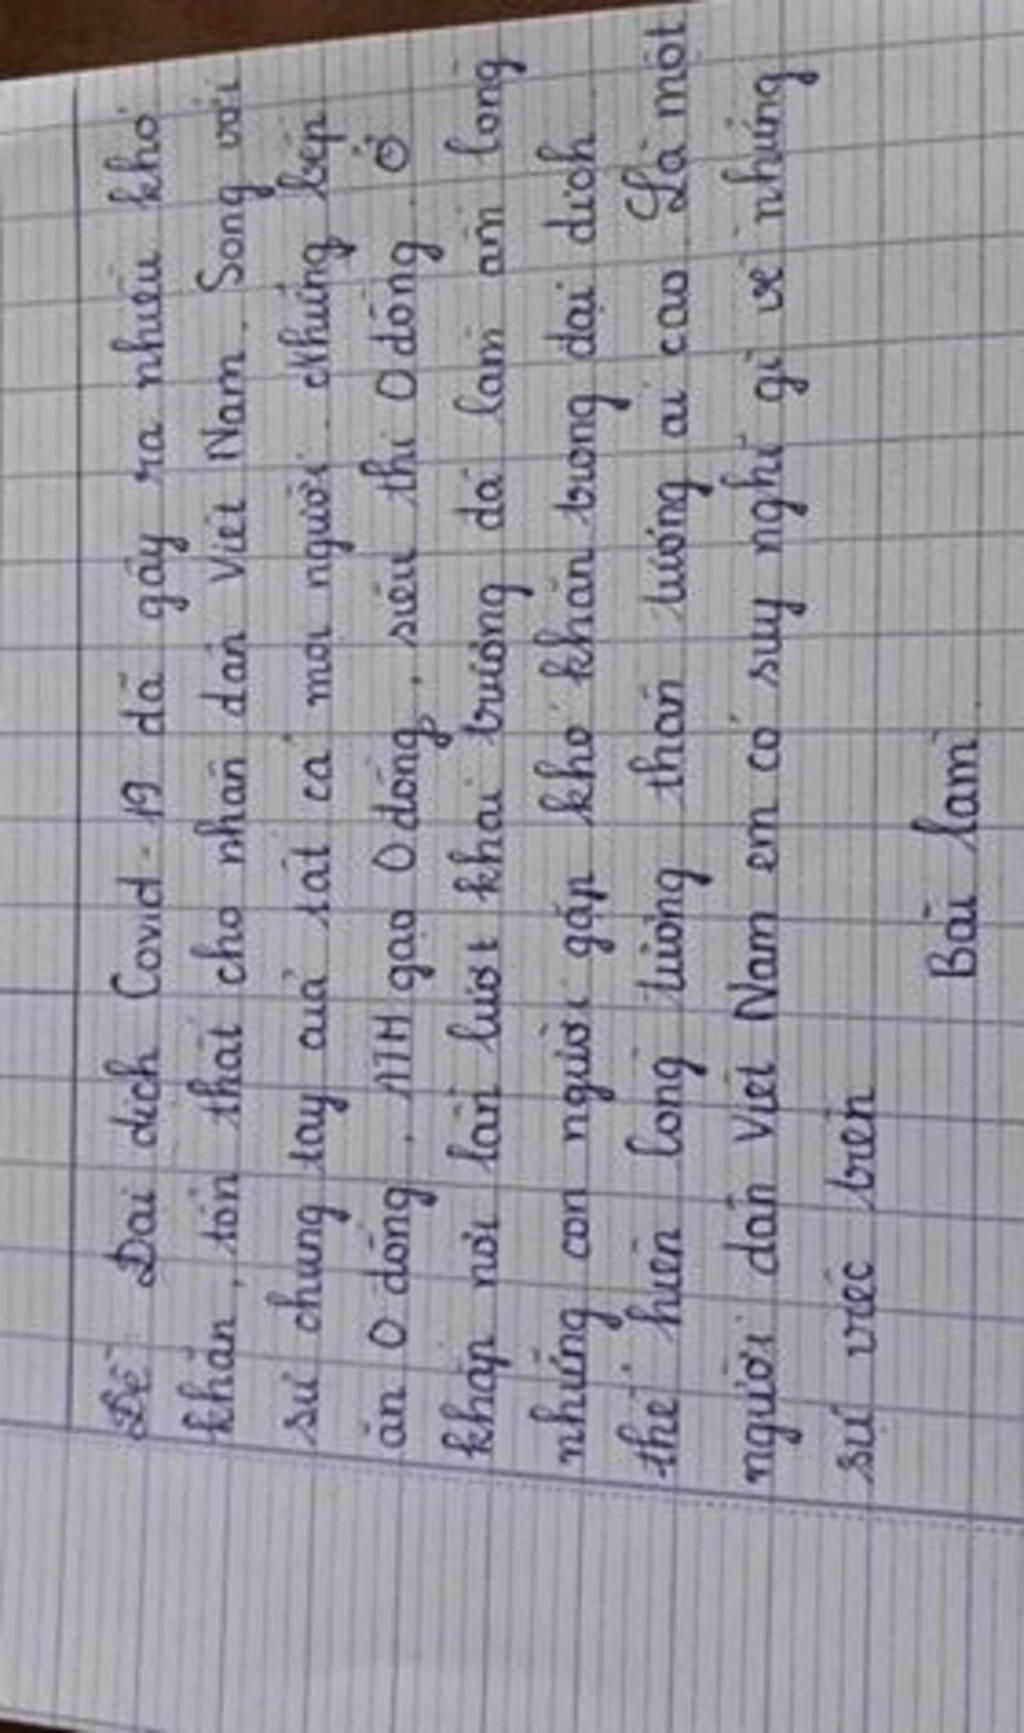 Đề Đại dịch Covid-19 đã gây ra nhiều khó
khăn, tổn thất cho nhân dân Việt Nam. Song với
sự chung tay của tất cả mọi người. Những bếp
ăn 0 đồng, ATM gạo 0 đồng, siêu thị 0 đồng. Ở
khắp nơi lần lượt khai trương đã làm ấm lòng
những con người gặp khó khăn trong đại dịch
thể hiện lòng tương thân tương ái cao. Là một
người dân Việt Nam em có suy nghĩ gì về những
sự việc trên
Bài làm